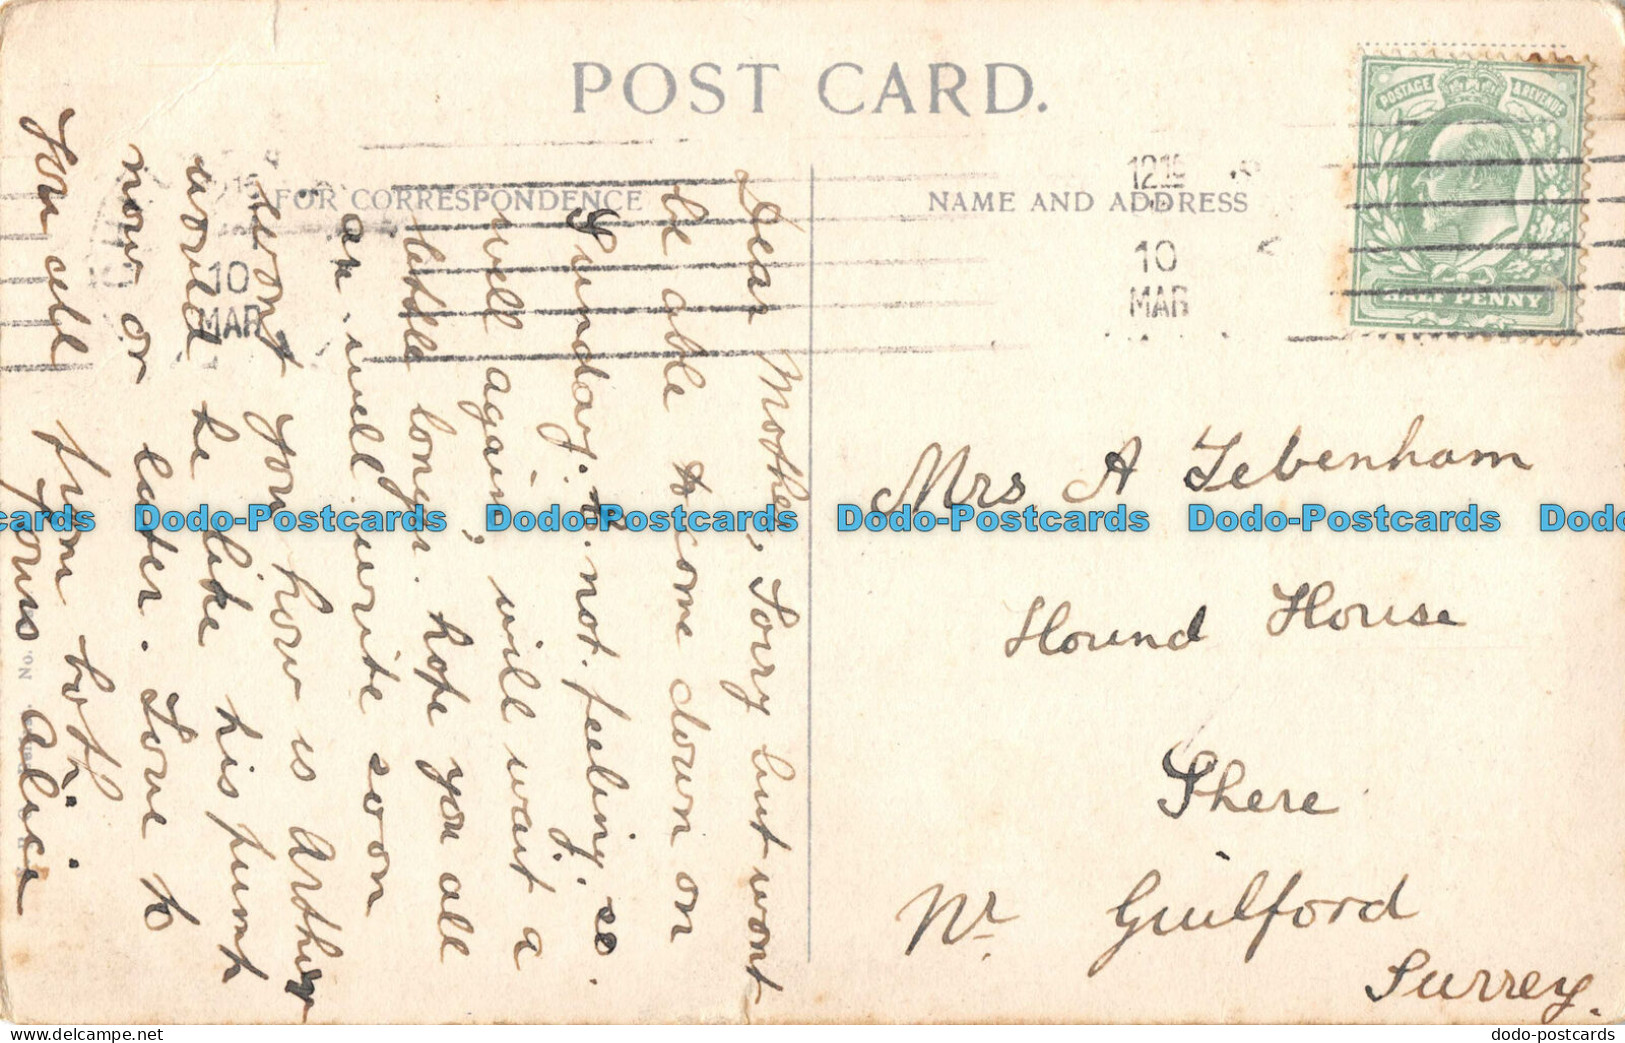 POST CARD.
FOR CORRESPONDENCE
NAME AND ADDRESS
POSTAGE & REVENUE
HALF PENNY
1215
10
MAR
10
MAR
Dear Mother, Sorry but wont
be able to come down on
Sunday. not. feeling. so.
well again, will wait a
little longer. hope you all
are well write soon
wont you how is Arthur
would he like his pump
now or later. Love to
You all from both
Yours Alice
Mrs A Tebenham
Hound House
Shere
Nr Guilford
Surrey.
No.
Dodo-Postcards Dodo-Postcards Dodo-Postcards Dodo-Postcards
dodo-postcards
dodo-postcards